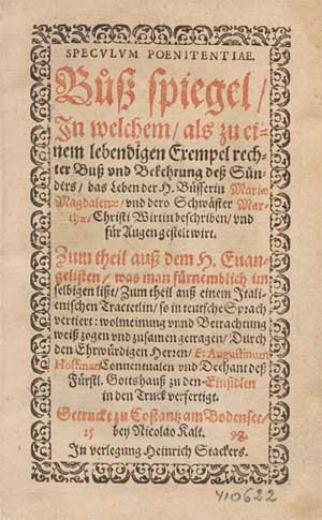 SPECVLVM POENITENTIAE.
Bůß spiegel/
In welchem/ als zu ei-
nem lebendigen Exempel rech-
ter Buß vnd Bekehrung deß Sün-
ders/ das Leben der H. Büsserin Mariæ
Magdalenæ/ vnd dero Schwäster Mar-
thæ/ Christi Wirtin beschriben/ vnd
für Augen gestelt wirt.
Zum theil auß dem H. Euan-
gelisten/ was man fürnemblich im
selbigen lißt/ Zum theil auß einem Itali-
enischen Tractetlin/ so in teutsche Sprach
vertiert: wolmeinung vnnd Betrachtung
weiß zogen vnd zusamen getragen/ Durch
den Ehrwürdigen Herren/ F: Augustinum
Hoffman Conuentualen vnd Dechant deß
Fürstl. Gottshauß zu den Einsidlen
in den Truck verfertigt.
Getruckt zu Costantz am Bodensee/
15 bey Nicolao Kalt. 98.
In verlegung Heinrich Stackers.
Y10622